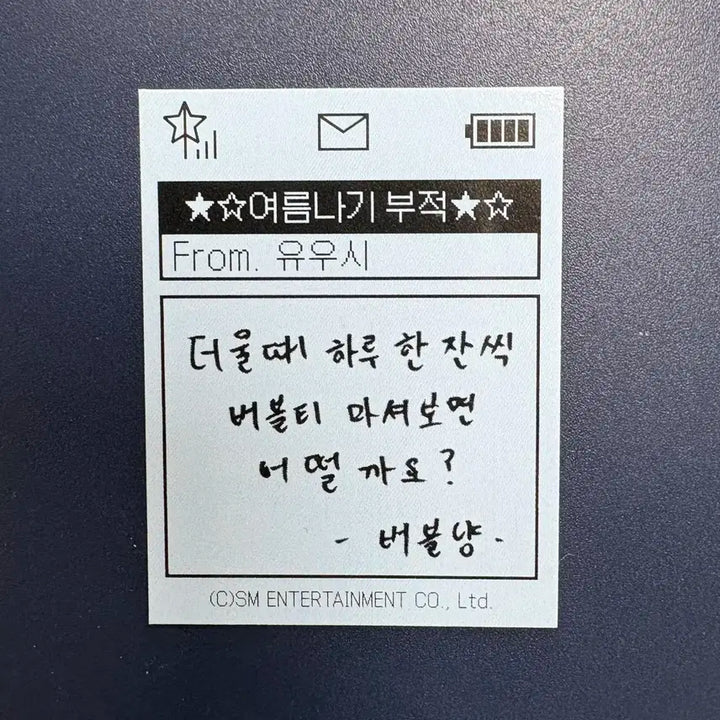 ★☆여름나기 부적★☆
From. 유우시
더울때 하루 한 잔씩
버블티 마셔보면
어떨까요?
- 버블냥 -
(C)SM ENTERTAINMENT CO., Ltd.